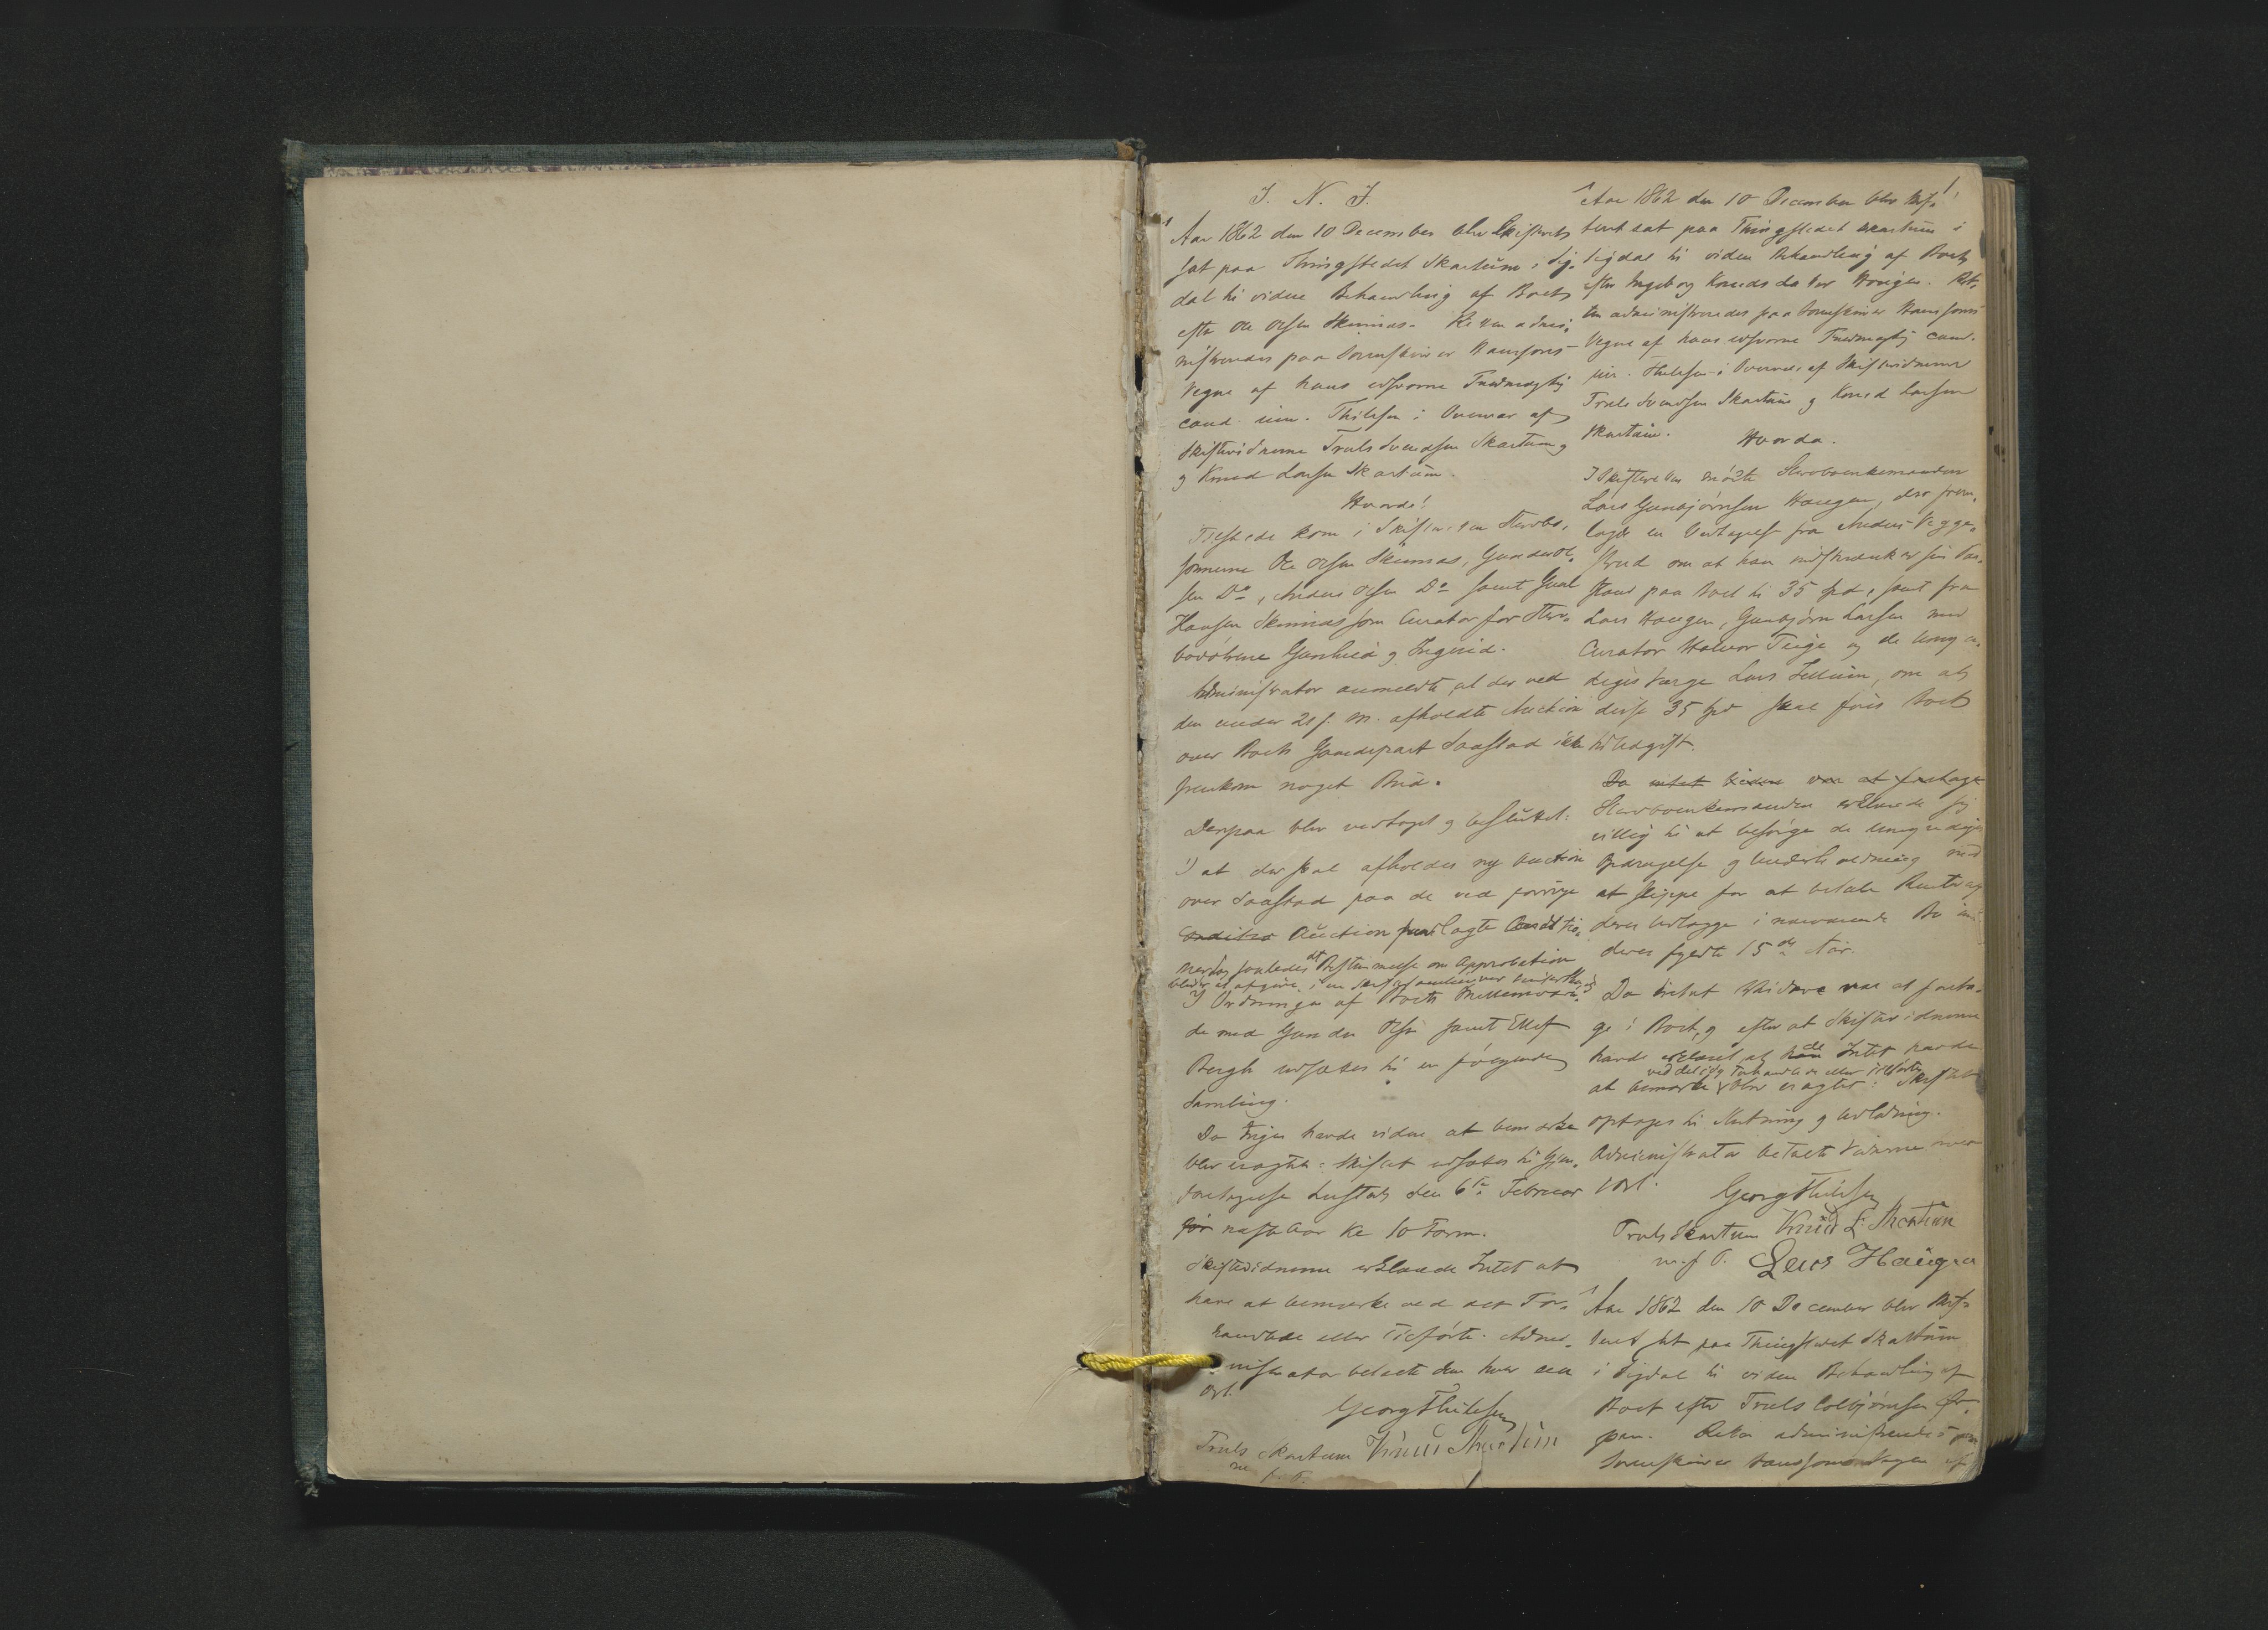 I. N. J.
Aar 1862 den 10 December blev Skifteret
sat paa Thingstedet Skartum i Sig-
dal til videre Behandling af Boet
efter Ole Olsen Skinnas. Retten admi-
nistreredes paa Sorenskriver Hansons
Vegne af hans edsvorne Fuldmægtig
cand. jur. Thilesen i Overvær af
Skiftevidnerne Truls Svendsen Skartum
og Knud Larsen Skartum.
Hvorda!
Tilstede kom i Skifteretten Stervbo-
sønnerne Ole Olsen Skinnas, Gunder Ol-
sen Do, Anders Olsen Do samt
Hansen Skinnas som Curator for Sterv-
bodøtrene Gunhild og Ingrid.
Administrator anmeldte, at der ved
den under 21 f. M. afholdte Auction
over Boets Gaardepart Saastad ikke
fremkom noget Bud.
Derpaa blev vedtaget og besluttet:
1) at der skal afholdes ny Auction
over Saastad paa de ved forrige
Auction fremlagte Conditio-
ner dog saaledes at Bestemmelse om Approbation
bliver at afgive i en Skiftesamling
2) Ordningen af Boets Mellemværen-
de med Gunder Olsen samt Ellef
Bergh udsættes til en følgende
Samling.
Da Ingen havde videre at bemærke
blev eragtet: Skiftet udsættes til Gjen-
foretagelse den 6te Februar
næste Aar Kl 10 Form.
Skiftevidnerne erklærede Intet at
have at bemærke ved det For-
handlede eller Tilførte. Admi-
nistrator betalte dem hver een
Ort.
Georg Thilesen
Truls Skartum Knud Skartum
m. f. P.
1.
Aar 1862 den 10 December blev Skif-
teret sat paa Thingstedet Skartum i
Sigdal til videre Behandling af Boet
efter Ingeborg Knudsdatter Haugen. Ret-
ten administreredes paa Sorenskriver Hansons
Vegne af hans edsvorne Fuldmægtig cand.
jur. Thilesen i Overvær af Skiftevidnerne
Truls Svendsen Skartum og Knud Larsen
Skartum.
Hvorda.
I Skifteretten mødte Stervboenkemanden
Lars Gunbjørnsen Haugen, der frem-
lagde en Vedtagelse fra Anders Vegge-
srud om at han indskrænker sin For-
dring paa Boet til 35 Spd, samt fra
Lars Haugen, Gunbjørn Larsen med
Curator Halvor Teige og de Umyn-
diges Værge Lars Jellum, om at
disse 35 Spd skal føies Boet
til Udgift.
Da intet videre var at foretage
Stervboenkemanden erklærede sig
villig til at besørge de Umyndiges
Opdragelse og Underholdning mod
at slippe for at betale Renter af
deres Udlægge i nærværende Bo indtil
deres fyldte 15de Aar.
Da Intet videre var at foreta-
ge i Boet, og efter at Skiftevidnerne
havde erklæret, at de Intet havde
at bemærke ved det dem Forhandlede eller Tilførte,
blev eragtet: Skiftet
optages til Slutning og Udlodning.
Administrator betalte Vidnerne hver
1 Ort.
Georg Thilesen
Truls Skartum Knud L. Skartum
m. f. P. Lars Haugen
Aar 1862 den 10 December blev Skif-
teret sat paa Thingstedet Skartum
i Sigdal til videre Behandling af
Boet efter Truls Colbjørnsen
Retten administreredes paa
Sorenskriver Hansons Vegne af